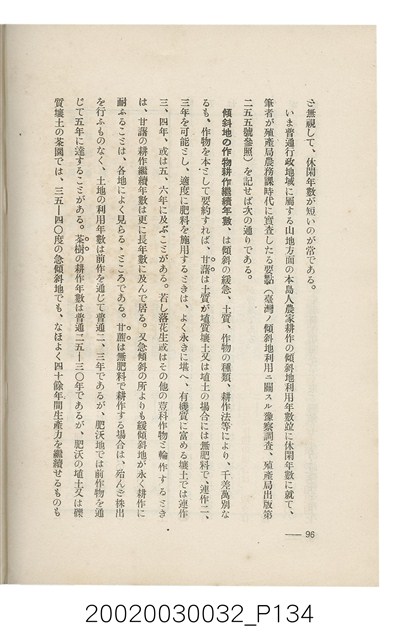 さ無視して、休閑年數が短いのが常である。
いま普通行政地域に屬する山地方面の本島人農家耕作の傾斜地利用年數竝に休閑年數に就て、
筆者が殖產局農務課時代に實査したる要點(臺灣ノ傾斜地利用ニ關スル豫察調査、殖產局出版第
二五五號參照)を記せば次の通りである。
傾斜地の作物耕作繼續年數、は傾斜の緩急、土質、作物の種類、耕作法等により、千差萬別な
るも、作物を本として要約すれば、甘藷は土質が埴質壤土又は埴土の場合には無肥料で、連作二、
三年を可能とし、適度に肥料を施用するときは、よく永きに堪へ、有機質に富める壤土では連作
三、四年、或は五、六年に及ぶことがある。若し落花生或はその他の荳科作物と輪作するとき
は、甘藷の耕作繼續年數は更に長年數に及んで居る。又急傾斜の所よりも緩傾斜地が永く耕作に
耐ふることは、各地によく見らるゝところである。甘蔗は無肥料で耕作する場合は、殆んど株出
を行ふものなく、土地の利用年數は前作を通じて普通二、三年であるが、肥沃地では前作物を通
じて五年に達することがある。茶樹の耕作年數は普通二五—三〇年であるが、肥沃の埴土又は礫
質壤土の茶園では、三五—四〇度の急傾斜地でも、なほよく四十餘年間生產力を繼續せるものも
96
20020030032_P134